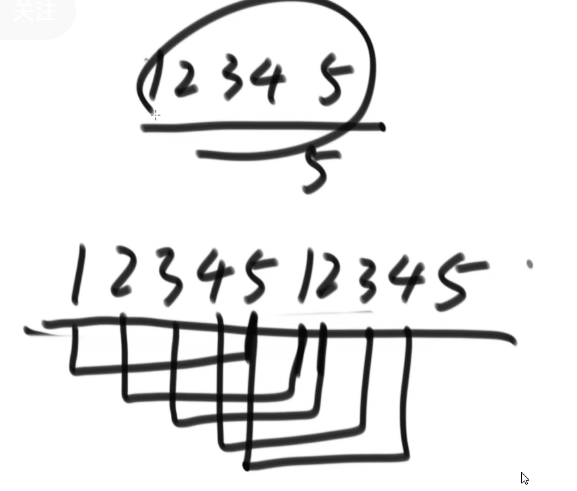 关注
1 2 3 4 5
5
1 2 3 4 5 1 2 3 4 5